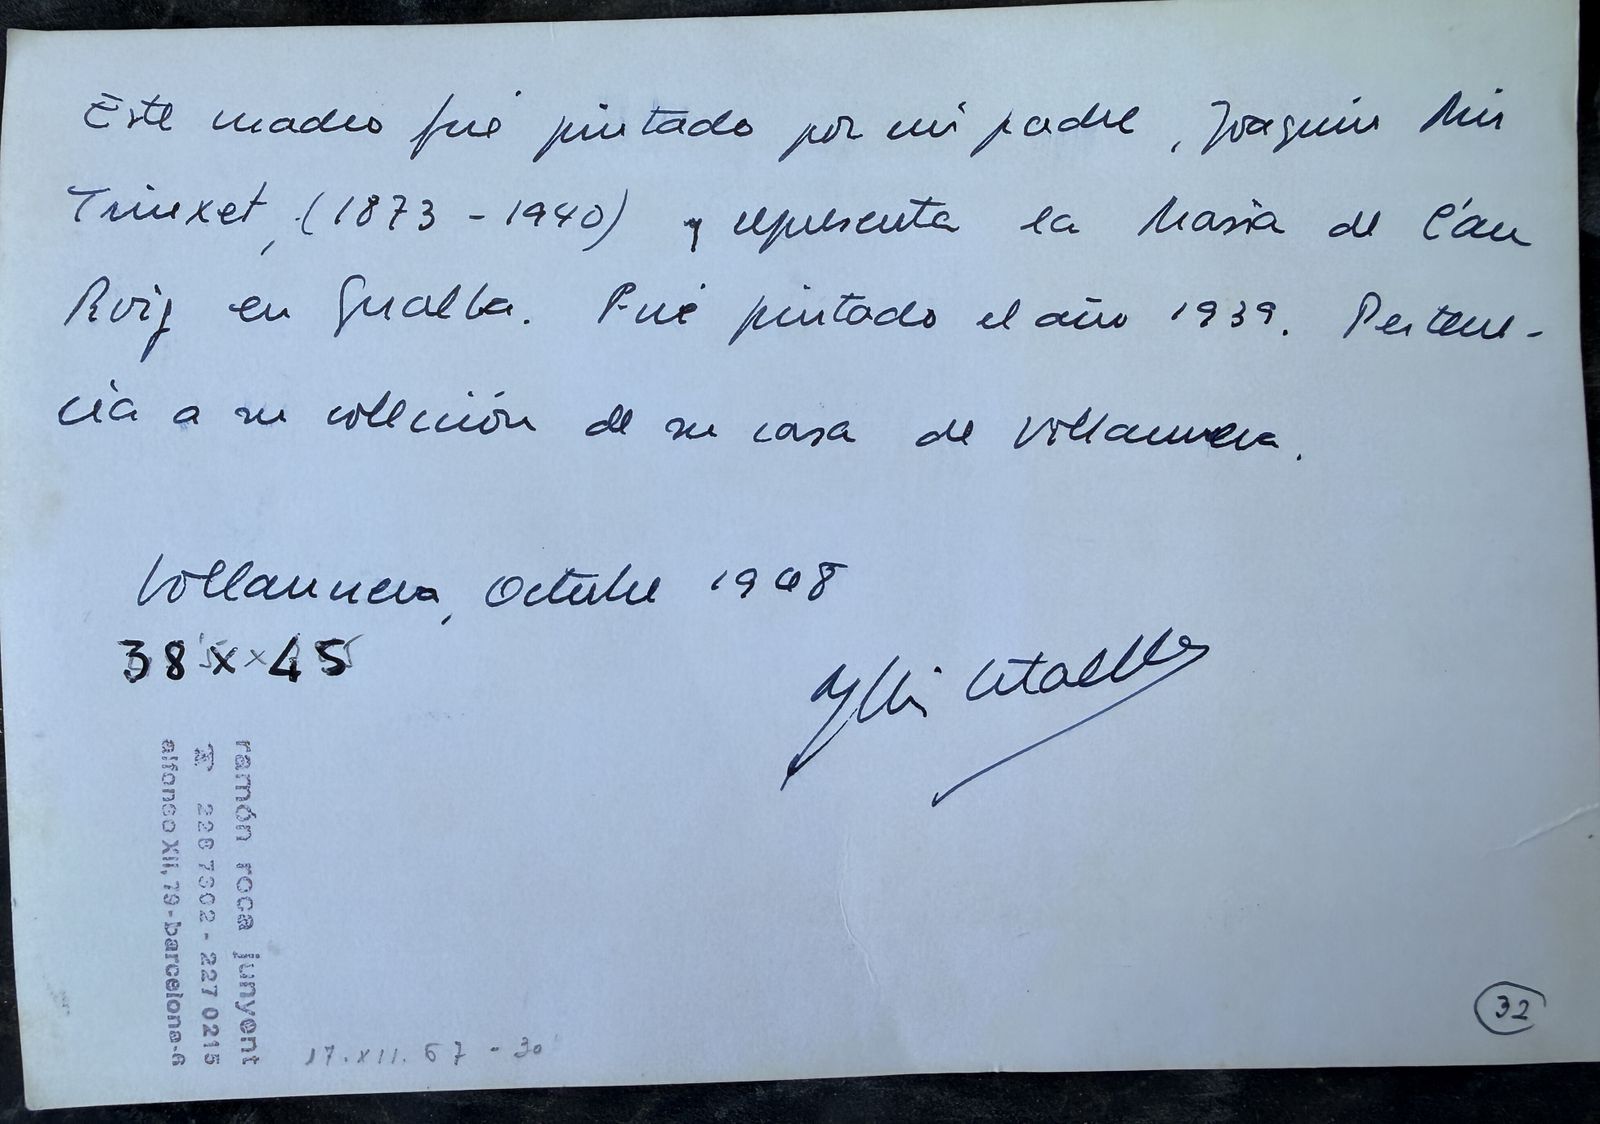 Este cuadro fué pintado por mi padre, Joaquin Mir
Trinxet, (1873 - 1940) y representa la Masia de C'an
Roig en Gualba. Fué pintado el año 1939. Pertene-
cia a su collección de su casa de Villanueva.
Villanueva, Octubre 1968
38 x 45
ramón roca junyent
228 7302 - 227 0215
alfonso XII, 79 - barcelona-6
17.XII.67 - 30
32